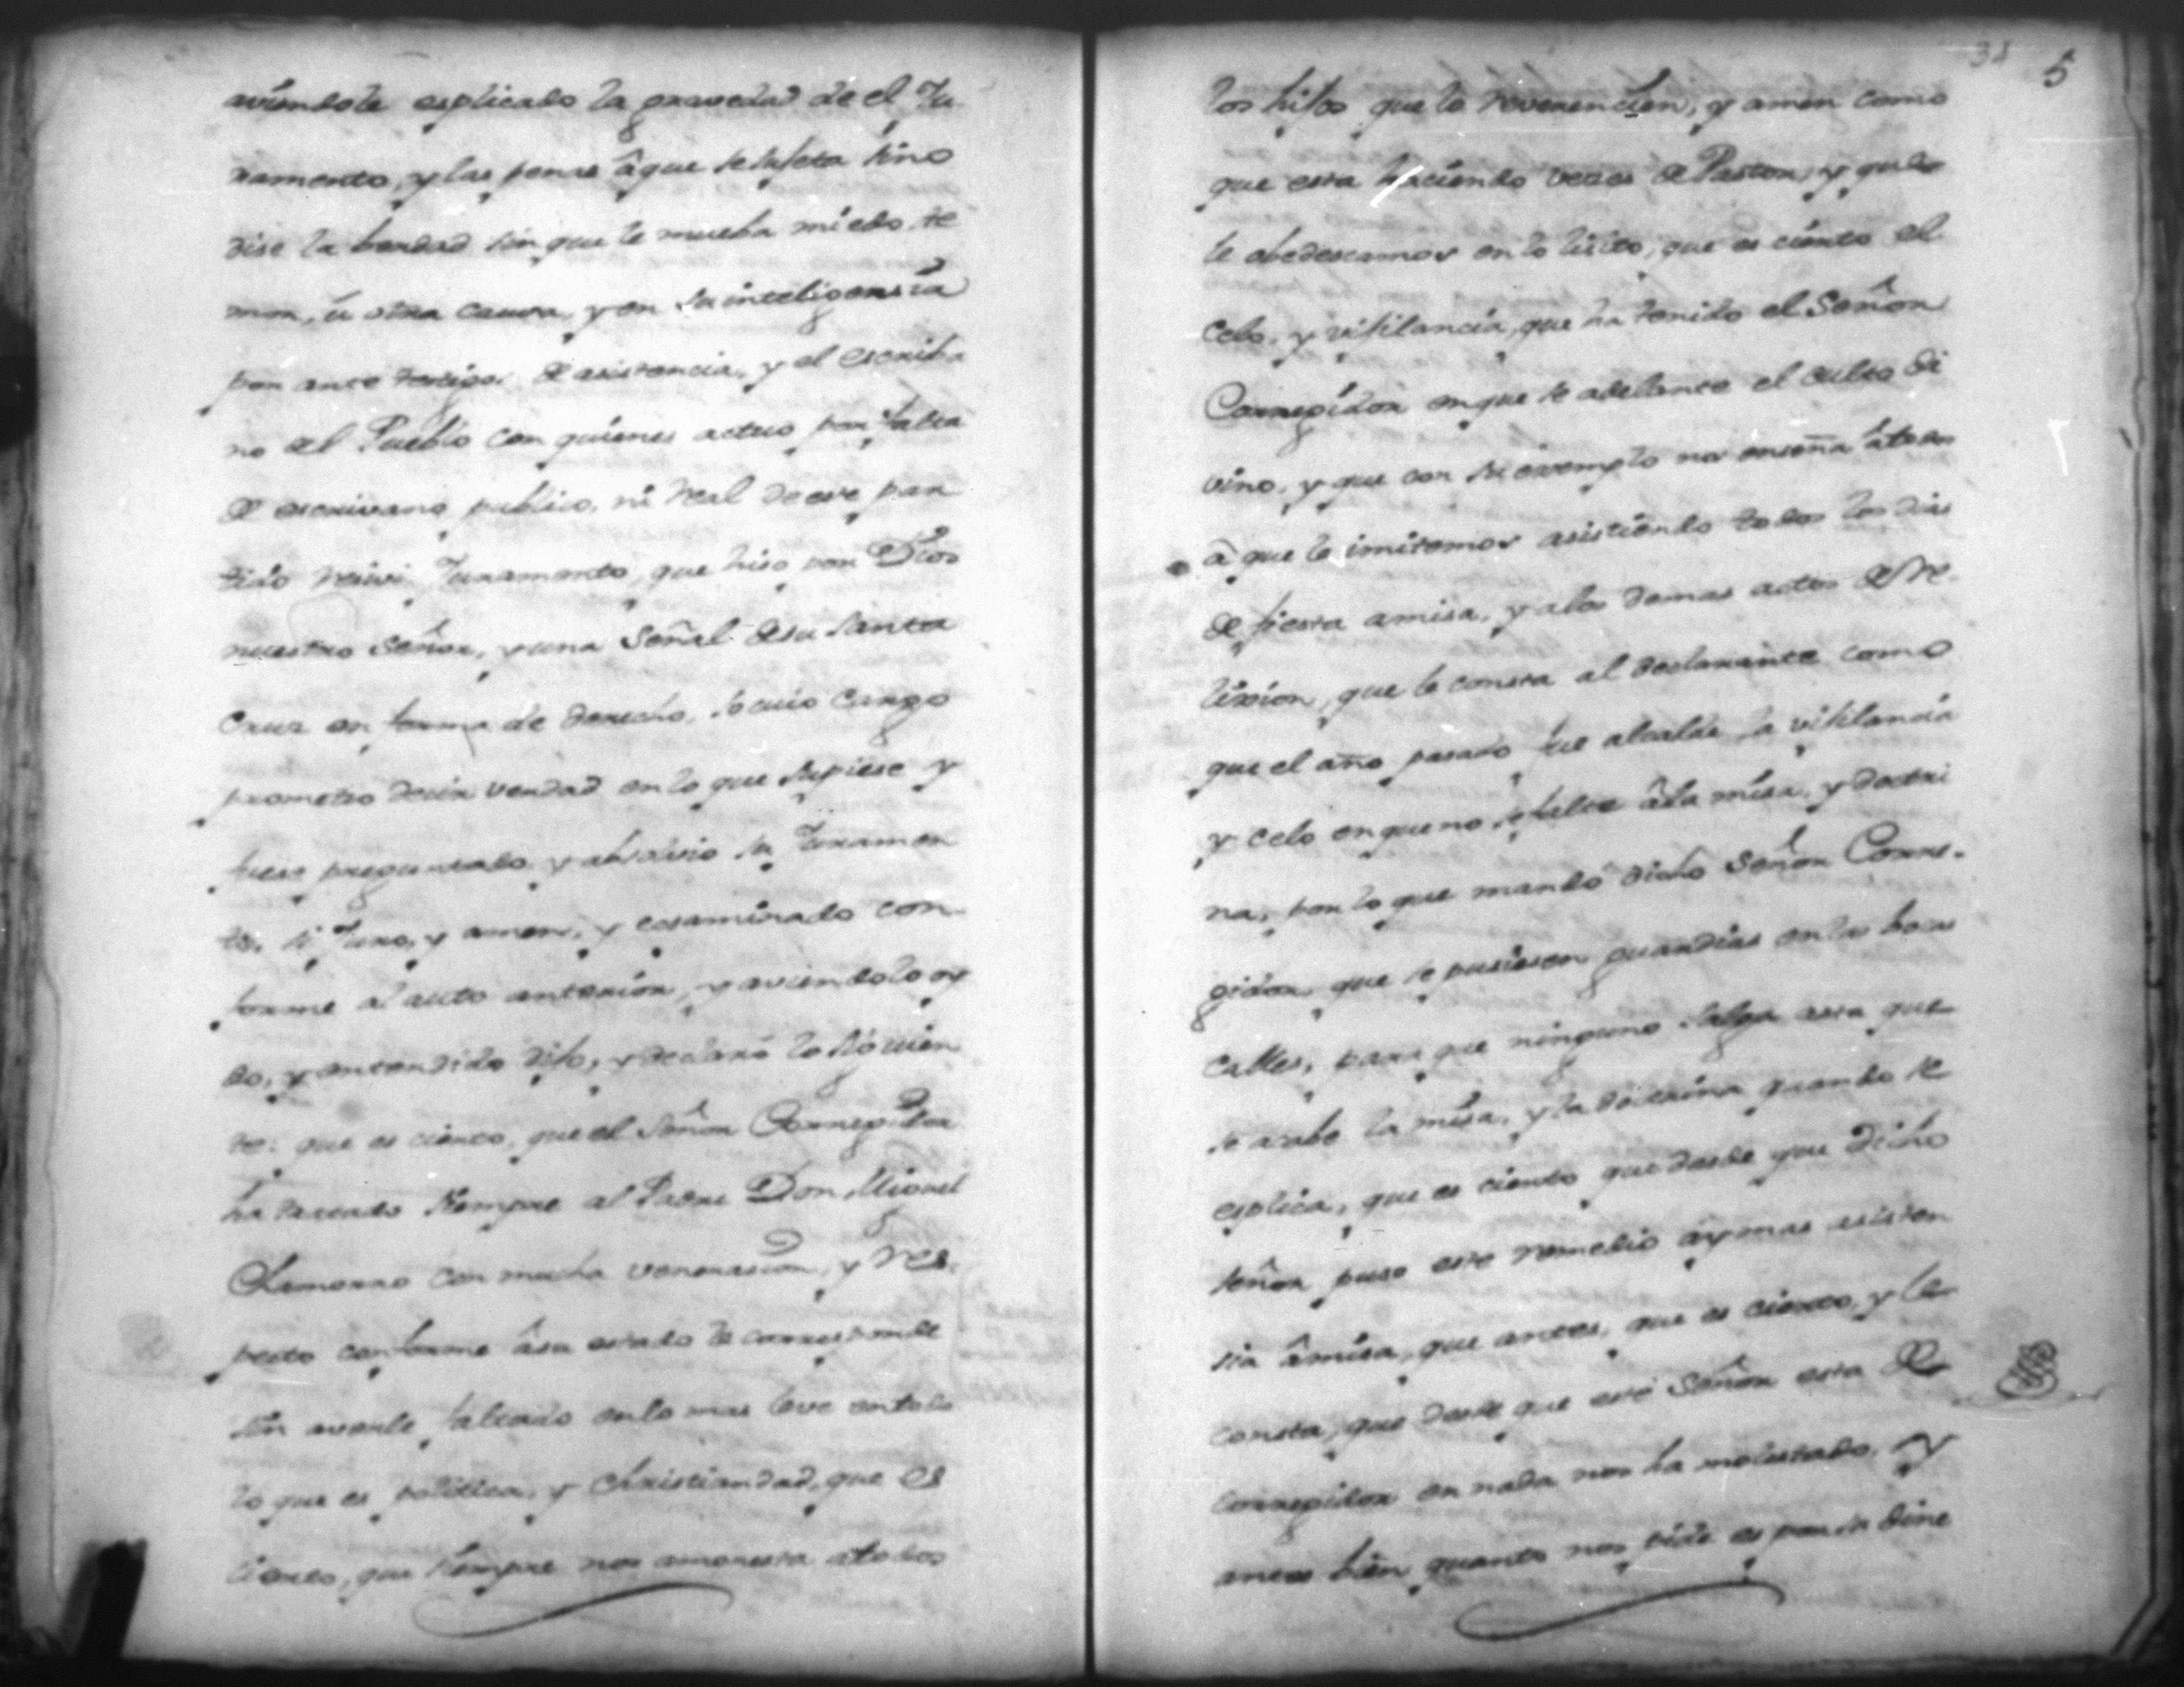 aviendole esplicado la gravedad de el Ju
ramento, y las penas âque se sujeta sino
dise la berdad sin que le mueba miedo, te
mor, û otra causa, y en su inteligensia
por ante testigos de asistencia, y el escriba
no del Pueblo con quienes actuo por falta
de escrivano publico, ni Real de este par
tido resivi Juramento, que hiso por Dios
nuestro Señor, y una Señal de su Santa
Cruz en forma de derecho, so cuio Cargo
prometio desir verdad en lo que supiese y
fuese preguntado y absolvio su Juramen
to, si Juro, y amen, y exsaminado con
forme al auto anterior, y aviendolo oy
do, y entendido dijo, y declaró lo siguien
te: que es cierto, que el Señor Corregidor
ha tratado siempre al Padre Don Miguel
Chamorro con mucha venerasion, y res-
pecto conforme âsu estado le corresponde
sin averle faltado en lo mas leve en todo
lo que es politica, y Christiandad, que es
cierto, que siempre nos amonesta atodos
31 5
los hijos que le reverencien, y amen como
que esta haciendo veces de Pastor, y que
le obedescamos en lo lisito, que es cierto el
Celo, y vijilancia, que ha tenido el Señor
Corregidor en que se adelante el culto di
vino, y que con su exemplo nos enseña âtodos
â que le imitemos asistiendo todos los dias
de fiesta amisa, y alos demas actos de re
lixion, que le consta al declarante como
que el año pasado fue alcalde la vijilancia
y celo en que no se falte âla misa, y doctri
na, por lo que mandó dicho Señor Corre-
gidor, que se pusiesen guardias en las bocas
calles, para que ninguno salga asta que
se acabe la misa, y la doctrina quando se
esplica, que es cierto que desde que dicho
señor puso este remedio ay mas asisten
sia âmisa, que antes, que es cierto, y le
consta, que desde que este Señor esta de
corregidor en nada nos ha molestado, y
antes bien quanto nos pide es por su dine